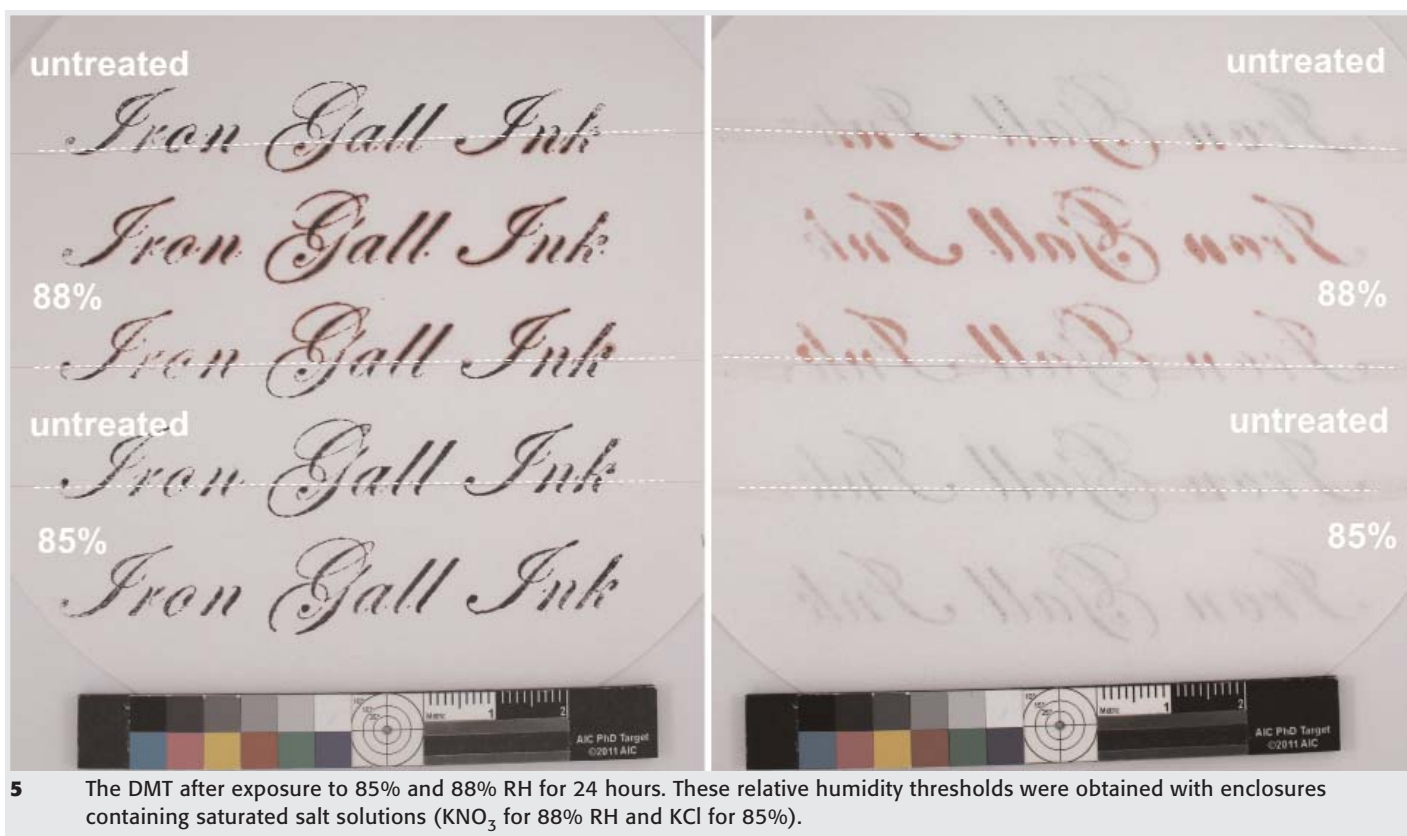 untreated
Iron Gall Ink
Iron Gall Ink
88%
Iron Gall Ink
untreated
Iron Gall Ink
85%
Iron Gall Ink
Metric 1 2
AIC PhD Target
©2011 AIC
untreated
Iron Gall Ink
Iron Gall Ink
88%
Iron Gall Ink
untreated
Iron Gall Ink
85%
Iron Gall Ink
Metric 1 2
AIC PhD Target
©2011 AIC
5 The DMT after exposure to 85% and 88% RH for 24 hours. These relative humidity thresholds were obtained with enclosures
containing saturated salt solutions (KNO₃ for 88% RH and KCl for 85%).